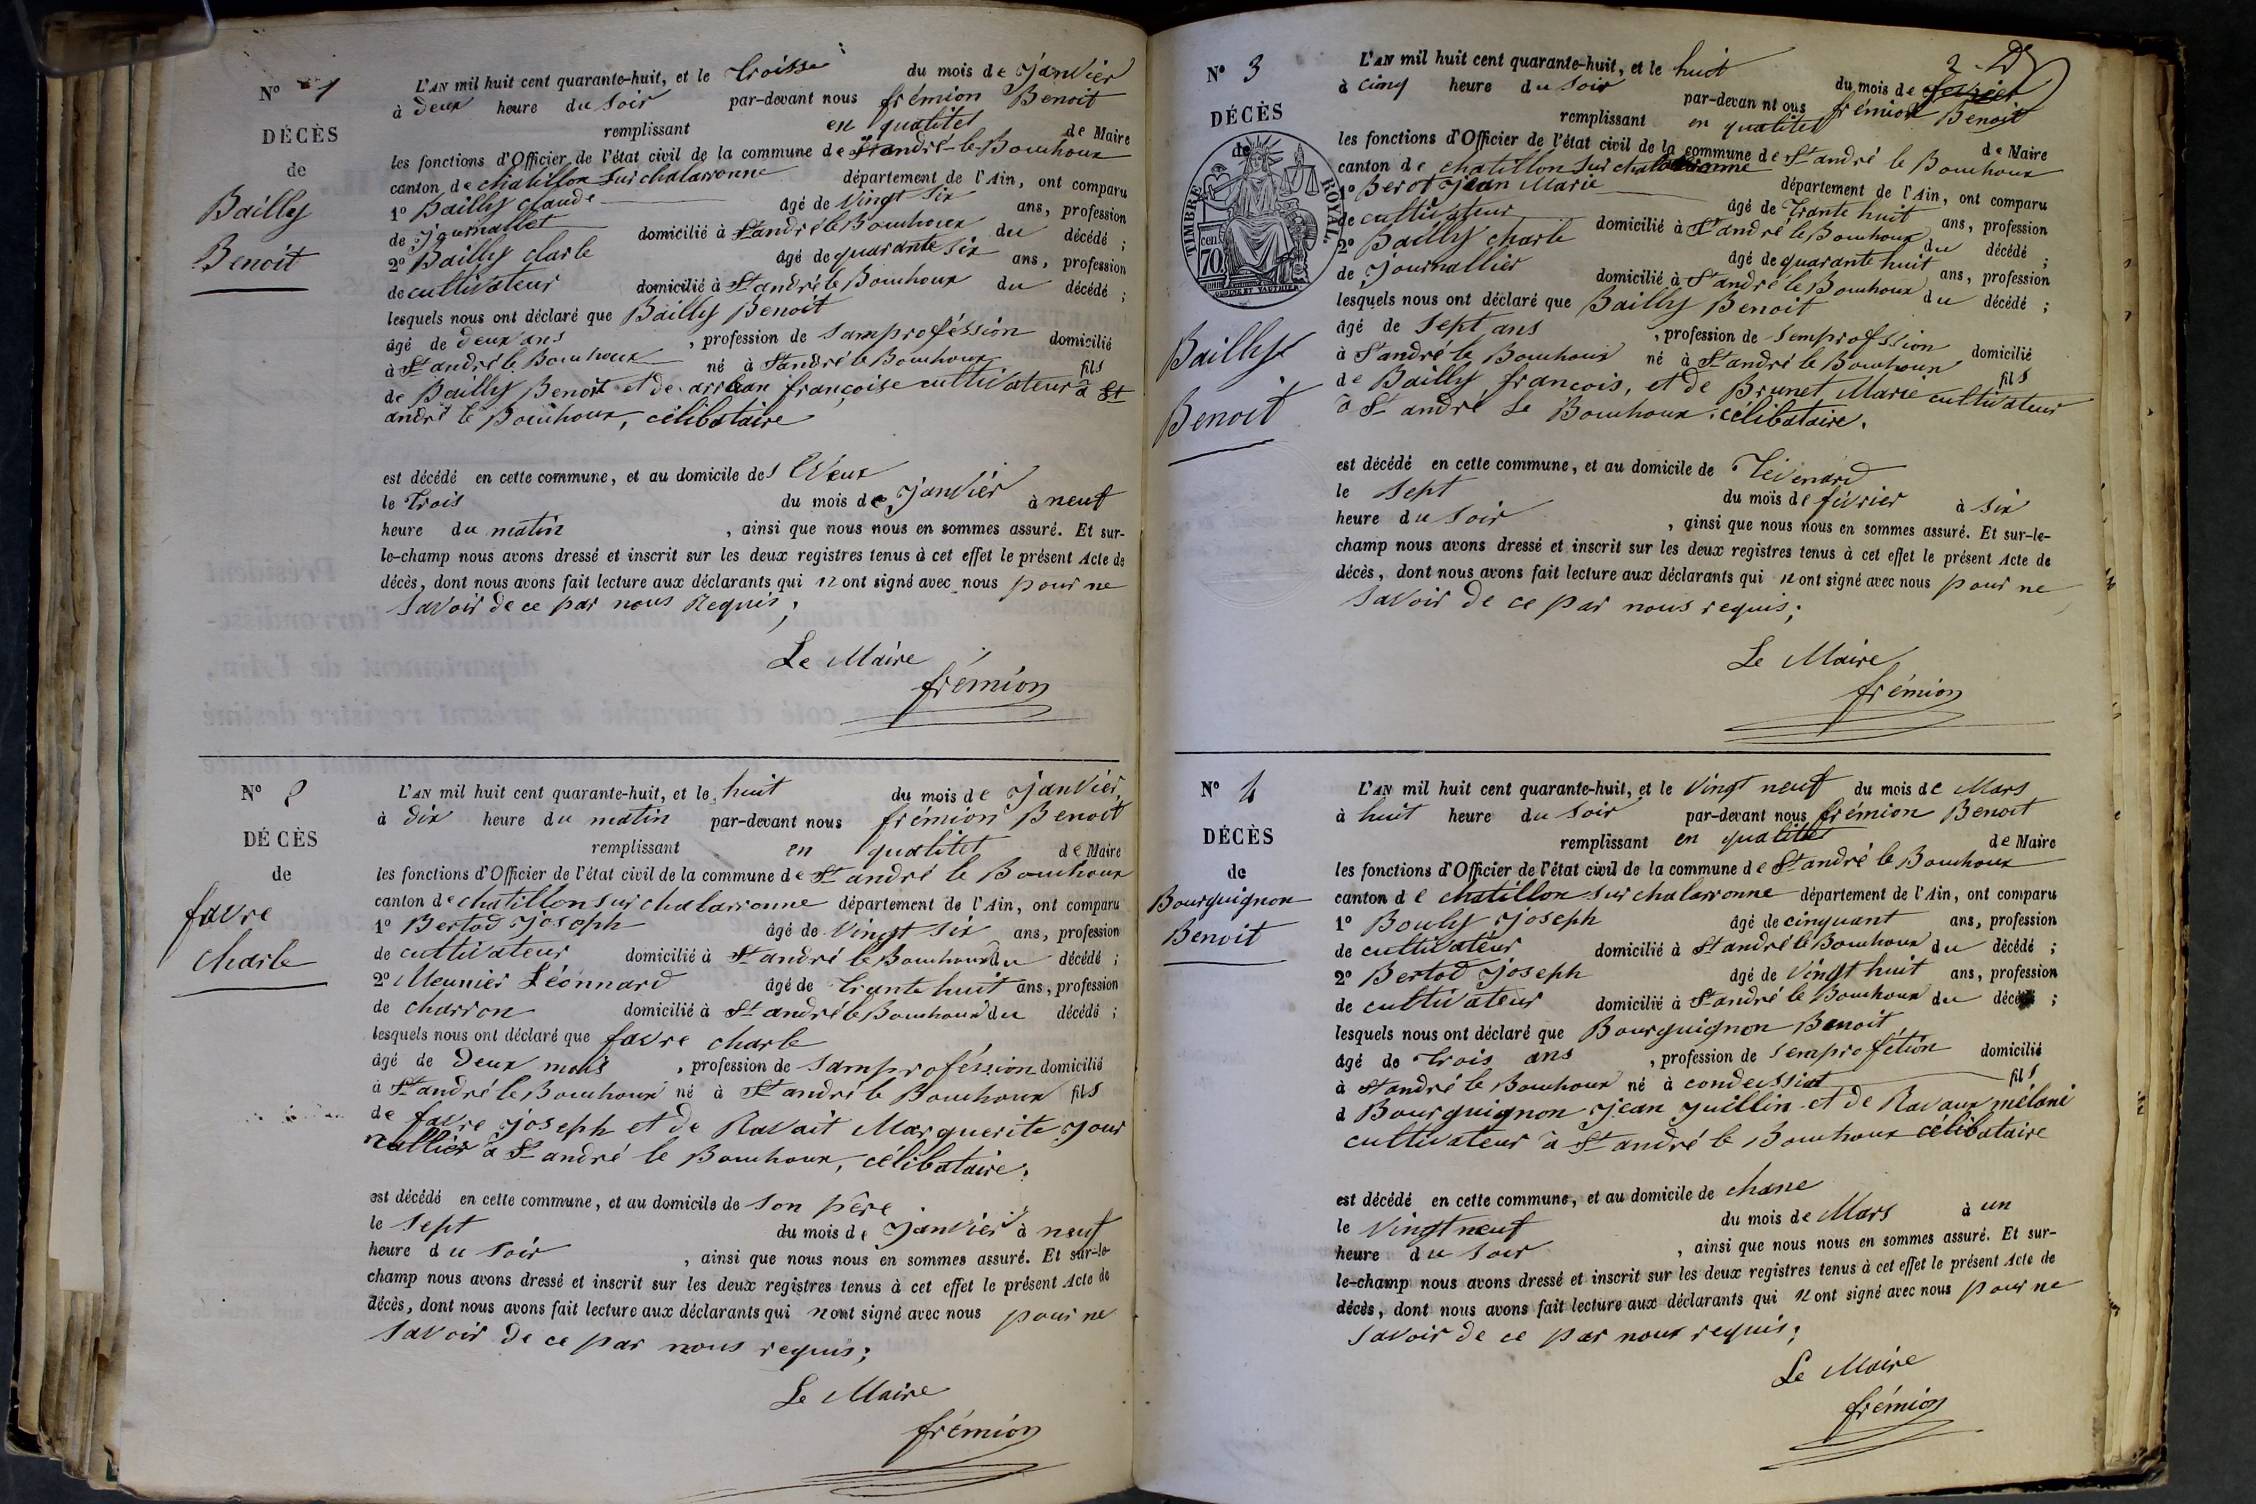 N° 1
DÉCÈS
de
Bailly
Benoit
L'AN mil huit cent quarante-huit, et le troisse du mois de Janvier
à deux heure du soir par-devant nous frémion Benoit
remplissant en qualitet de Maire
les fonctions d'Officier de l'état civil de la commune de St andré-le-Bouchoux
canton de chatillon sur chalaronne département de l'Ain, ont comparu
1° Bailly claude âgé de vingt six ans, profession
de journallet domicilié à St andré le Bouchoux du décédé ;
2° Bailly charle âgé de quarante six ans, profession
de cultivateur domicilié à St andré le Bouchoux du décédé ;
lesquels nous ont déclaré que Bailly Benoit
âgé de deux ans , profession de samproféssion domicilié
à St andré le Bouchoux né à St andré le Bouchoux fils
de Bailly Benoit et de françoise cultivateur à St
andré le Bouchoux, célibataire
est décédé en cette commune, et au domicile des
le trois du mois de Janvier à neuf
heure du matin , ainsi que nous nous en sommes assuré. Et sur-
le-champ nous avons dressé et inscrit sur les deux registres tenus à cet effet le présent Acte de
décès, dont nous avons fait lecture aux déclarants qui n ont signé avec nous pour ne
savoir de ce par nous Requis;
Le Maire
frémion
N° 2
DÉCÈS
de
favre
charle
L'AN mil huit cent quarante-huit, et le huit du mois de Janvier
à dix heure du matin par-devant nous frémion Benoit
remplissant en qualitet de Maire
les fonctions d'Officier de l'état civil de la commune de St andré le Bouchoux
canton de chatillon sur chalaronne département de l'Ain, ont comparu
1° Bertod Joseph âgé de vingt six ans, profession
de cultivateur domicilié à St andré le Bouchoux du décédé ;
2° Meunier Léonnard âgé de trante huit ans, profession
de charron domicilié à St andré le Bouchoux du décédé ;
lesquels nous ont déclaré que favre charle
âgé de deux mois , profession de samproféssion domicilié
à St andré le Bouchoux né à St andré le Bouchoux fils
de favre Joseph et de Ravait Marguerite jour
nallier à St andré le Bouchoux, célibataire,
est décédé en cette commune, et au domicile de son père
le sept du mois de Janvier à neuf
heure du soir , ainsi que nous nous en sommes assuré. Et sur-le-
champ nous avons dressé et inscrit sur les deux registres tenus à cet effet le présent Acte de
décès, dont nous avons fait lecture aux déclarants qui n ont signé avec nous pour ne
savoir de ce par nous requis;
Le Maire
frémion
N° 3
DÉCÈS
de
TIMBRE ROYAL.
70 cen
Bailly
Benoit
L'AN mil huit cent quarante-huit, et le huit du mois de fevrier
à cinq heure du soir par-devan nt ous frémion Benoit
remplissant en qualitet de Maire
les fonctions d'Officier de l'état civil de la commune de St andré le Bouchoux
canton de chatillon sur chalaronne département de l'Ain, ont comparu
1° Berot Jean Marie âgé de trante huit ans, profession
de cultivateur domicilié à St andré le Bouchoux du décédé ;
2° Bailly charle âgé de quarante huit ans, profession
de journallier domicilié à St andré le Bouchoux du décédé ;
lesquels nous ont déclaré que Bailly Benoit
âgé de sept ans , profession de semprofssion domicilié
à St andré le Bouchoux né à St andré le Bouchoux fils
de Bailly françois, et de Brunet Marie cultivateur
à St andré Le Bouchoux, célibataire.
est décédé en cette commune, et au domicile de
le sept du mois de février à six
heure du soir , ainsi que nous nous en sommes assuré. Et sur-le-
champ nous avons dressé et inscrit sur les deux registres tenus à cet effet le présent Acte de
décès, dont nous avons fait lecture aux déclarants qui n ont signé avec nous pour ne
savoir de ce par nous requis;
Le Maire
frémion
N° 4
DÉCÈS
de
Bourguignon
Benoit
L'AN mil huit cent quarante-huit, et le vingt neuf du mois de Mars
à huit heure du soir par-devant nous frémion Benoit
remplissant en qualitet de Maire
les fonctions d'Officier de l'état civil de la commune de St andré le Bouchoux
canton de chatillon sur chalaronne département de l'Ain, ont comparu
1° Bouly Joseph âgé de cinquant ans, profession
de cultivateur domicilié à St andré le Bouchoux du décédé ;
2° Bertod Joseph âgé de vingt huit ans, profession
de cultivateur domicilié à St andré le Bouchoux du décédé ;
lesquels nous ont déclaré que Bourguignon Benoit
âgé de trois ans , profession de semprofétion domicilié
à St andré le Bouchoux né à condeissiat fils
d Bourguignon Jean Juillin et de Ravaux mélani
cultivateur à St andré le Bouchoux célibataire
est décédé en cette commune, et au domicile de chane
le vingt neuf du mois de Mars à un
heure du soir , ainsi que nous nous en sommes assuré. Et sur-
le-champ nous avons dressé et inscrit sur les deux registres tenus à cet effet le présent Acte de
décès, dont nous avons fait lecture aux déclarants qui n ont signé avec nous pour ne
savoir de ce par nous requis;
Le Maire
frémion